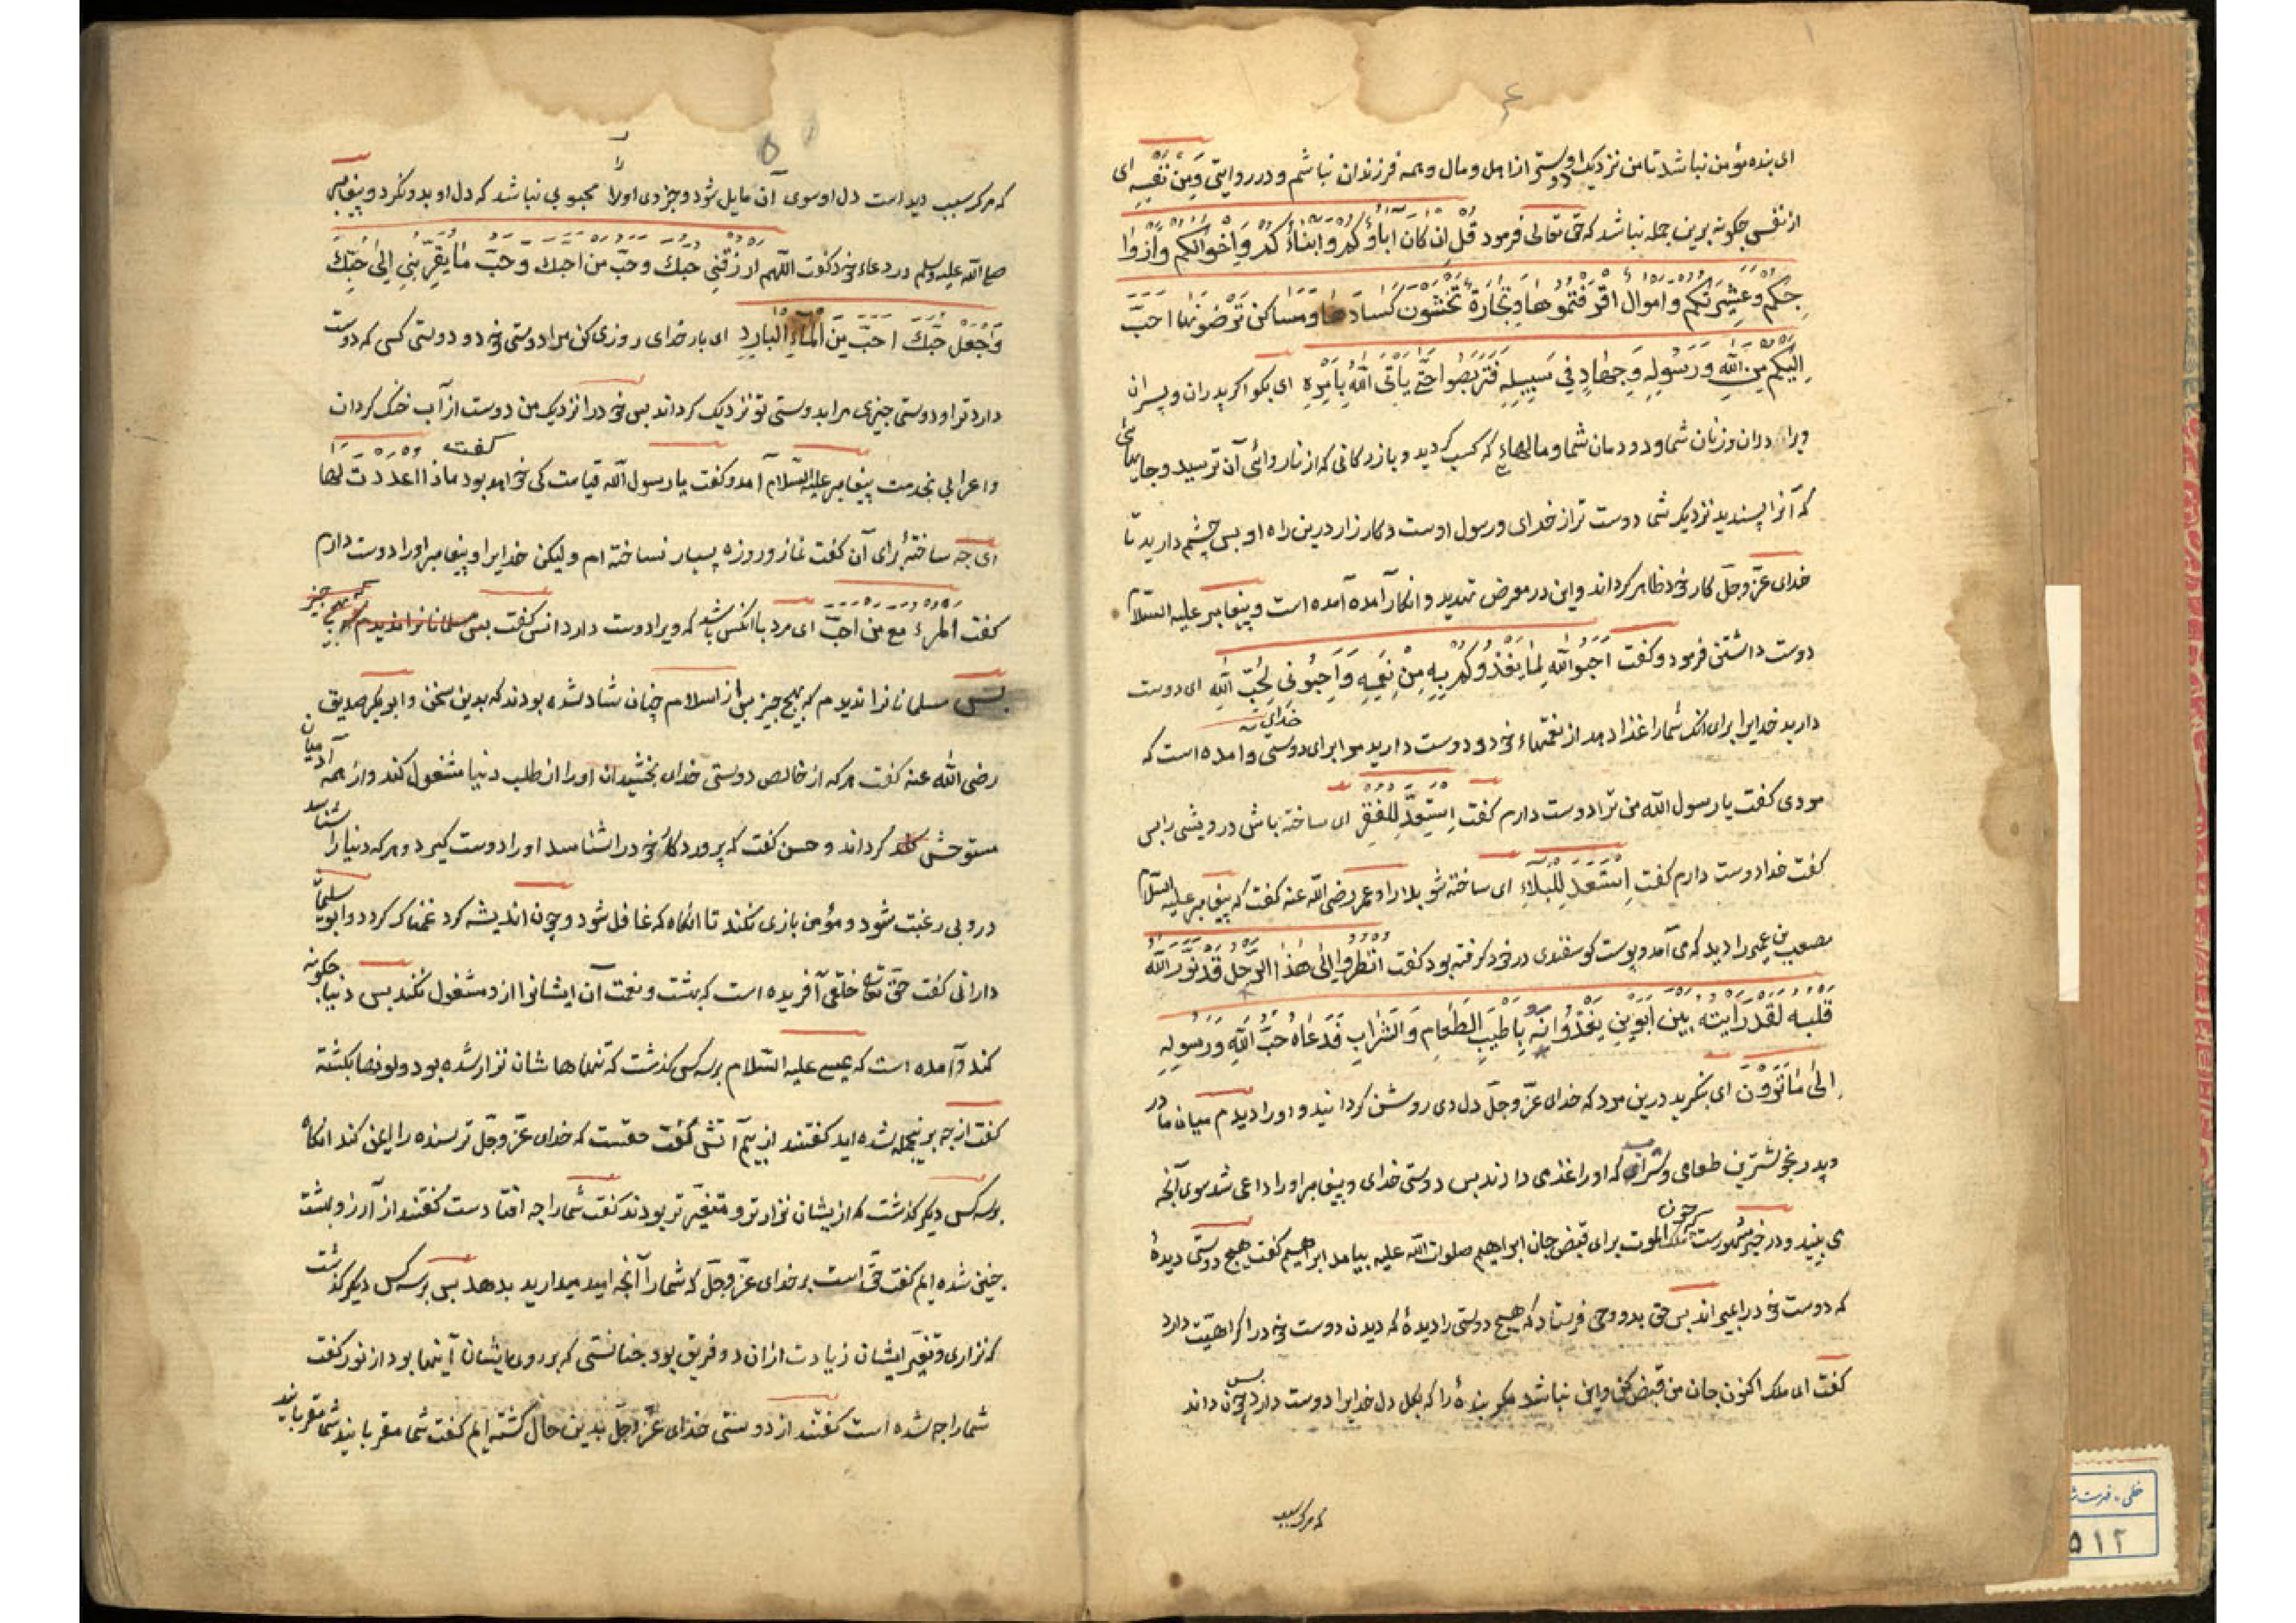 ای بنده مؤمن نباشد تا من نزدیک او دوستر از اهل و مال و همه فرزندان نباشم و در روایتی وَمِنْ نَفْسِهِ ای
از نفس چکونه برین جمله نباشد که حق تعالی فرمود قُل اِن کانَ اٰباؤکم وابناؤکم وَاِخوانکم وَازوٰا
جکم وعشیرتکم واموال اقترفتموها وتجارة تخشون کسادها ومساکن ترضونها احبّ
الیکم من الله ورسوله وجهاد فی سبیله فتربّصوا حتّی یاتی الله بامره ای بکو اکر پدران و پسران
وبرادران وزنان شما ودودمان شما ومالهاء که کسب کردید و بازرکانی که از ناروائی آن ترسید وجایهائی
که آنرا پسندید نزدیک شما دوست تر از خدای ورسول اوست و کارزار در این راه او پس چشم دارید تا
خدای عزّ وجلّ کار خود ظاهر کرداند واین در معرض تهدید وانکار آمده آمده است وپیغامبر علیه السّلام
دوست داشتن فرمود وکفت احبّوا الله لما یغذوکم به من نعمه وَاحبّونی لحبّ الله ای دوست
دارید خدایرا برای انک شمارا غذا دهد از نعمتهاء خود و دوست دارید مرا برای دوستی خدای وامده است که
مردی کفت یا رسول الله من ترا دوست دارم کفت اِستعدّ للفقر ای ساخته باش درویشی را پس
کفت خدا دوست دارم کفت استعد للبلاء ای ساخته شو بلا را وعمر رضی الله عنه کفت که پیغامبر علیه السّلام
مصعب بن عمیر را دید که می آمد وپوست کوسفندی در خود کرفته بود کفت انظروا الی هذا الرّجل قد نوّر الله
قلبه لقد رایته بین ابوین یغذوانه باطیب الطعام والشراب فدعاه حبّ الله ورسوله
الی ما ترون ای بنکرید درین مرد که خدای عزّ وجلّ دل وی روشن کردانید و او را دیدم میان مادر
وپدر بخوشترین طعامی وشرابی که اورا غذا می دادند پس دوستی خدای وپیغامبر اورا داعی شد سوی آنچه
می بینید ودر خبر مشهورست که چون ملک الموت برای قبض جان ابراهیم صلوت الله علیه بیامد ابراهیم کفت هیچ دوستی دیدۀ
که دوست خود را بمیراند پس حق بدو وحی فرستاد که هیچ دوستی را دیدۀ که دیدن دوست خود را کراهیت دارد
کفت ای ملک اکنون جان من قبض کن واین نباشد مکر بندۀ را که بکل دل خدایرا دوست دارد پس چون داند
که مرک سبب
که مرک سبب دیدارست دل او سوی آن مایل شود وجز وی اورا محبوبی نباشد که دل او بدو نکرد وپیغامبر
صلی الله علیه وسلم در دعاء خود کفت اللّهم ارزقنی حبّک وحبّ من احبّک وحبّ ما یقرّبنی الی حبّک
واجعل حبّک احبّ من الماء البارد ای بار خدای روزی کن مرا دوستی خود و دوستی کسی که دوست
دارد ترا ودوستی چیزی مرا بدوستی تو نزدیک کرداند پس خود را نزدیک من دوست از آب خنک کردان
واعرابی بخدمت پیغامبر علیه السّلام آمد وکفت یا رسول الله قیامت کی خواهد بود کفت ماذا اعددت لها
ای چه ساختۀ برای آن کفت نماز و روزه بسیار نساخته ام ولیکن خدایرا وپیغامبر اورا دوست دارم
کفت المرء مع من احبّ ای مرد با انکس باشد که ویرا دوست دارد انس کفت
پس مسلمانانرا ندیدم که بهیچ چیز پس از اسلام چنان شاد شده بودند که بدین سخن وابوبکر صدیق
رضی الله عنه کفت هر که از خالص دوستی خدای بخشید ان اورا از طلب دنیا مشغول کند واز همه آدمیان
مستوحش کرداند وحسن کفت که پروردکار خود را شناسد اورا دوست کیرد وهر که دنیا را شناسد
در و بی رغبت شود ومؤمن بازی نکند تا انکاه که غافل شود وچون اندیشه کرد غمناک کردد وابو سلیمان
دارانی کفت حق تعالی خلقی آفریده است که بهشت ونعمت آن ایشانرا ازو مشغول نکند پس دنیا چکونه
کند وآمده است که عیسی علیه السّلام بر سه کس کذشت که تنها هاشان نزار شده بود ولونها بکشته
کفت از چه برینجمله شده اید کفتند از بیم آتش کفت حقست که خدای عزّ وجلّ ترسنده را ایمن کند انکاه
بر سه کس دیکر کذشت که ازیشان نزارتر ومتغیّرتر بودند کفت شمارا چه افتادست کفتند از آرزو بهشت
چنین شده ایم کفت حق است بر خدای عزّ وجلّ که شمارا آنچه امید میدارید بدهد پس بر سه کس دیکر کذشت
که نزاری وتغیّر ایشان زیادت ازان دو فریق بود چنانستی که بر رویهایشان آینها بود از نور کفت
شمارا چه شده است کفتند از دوستی خدای عزّ وجلّ بدین حال کشته ایم کفت شما مقربانید شما مقربانید
خطی - فهرست
۵۱۲